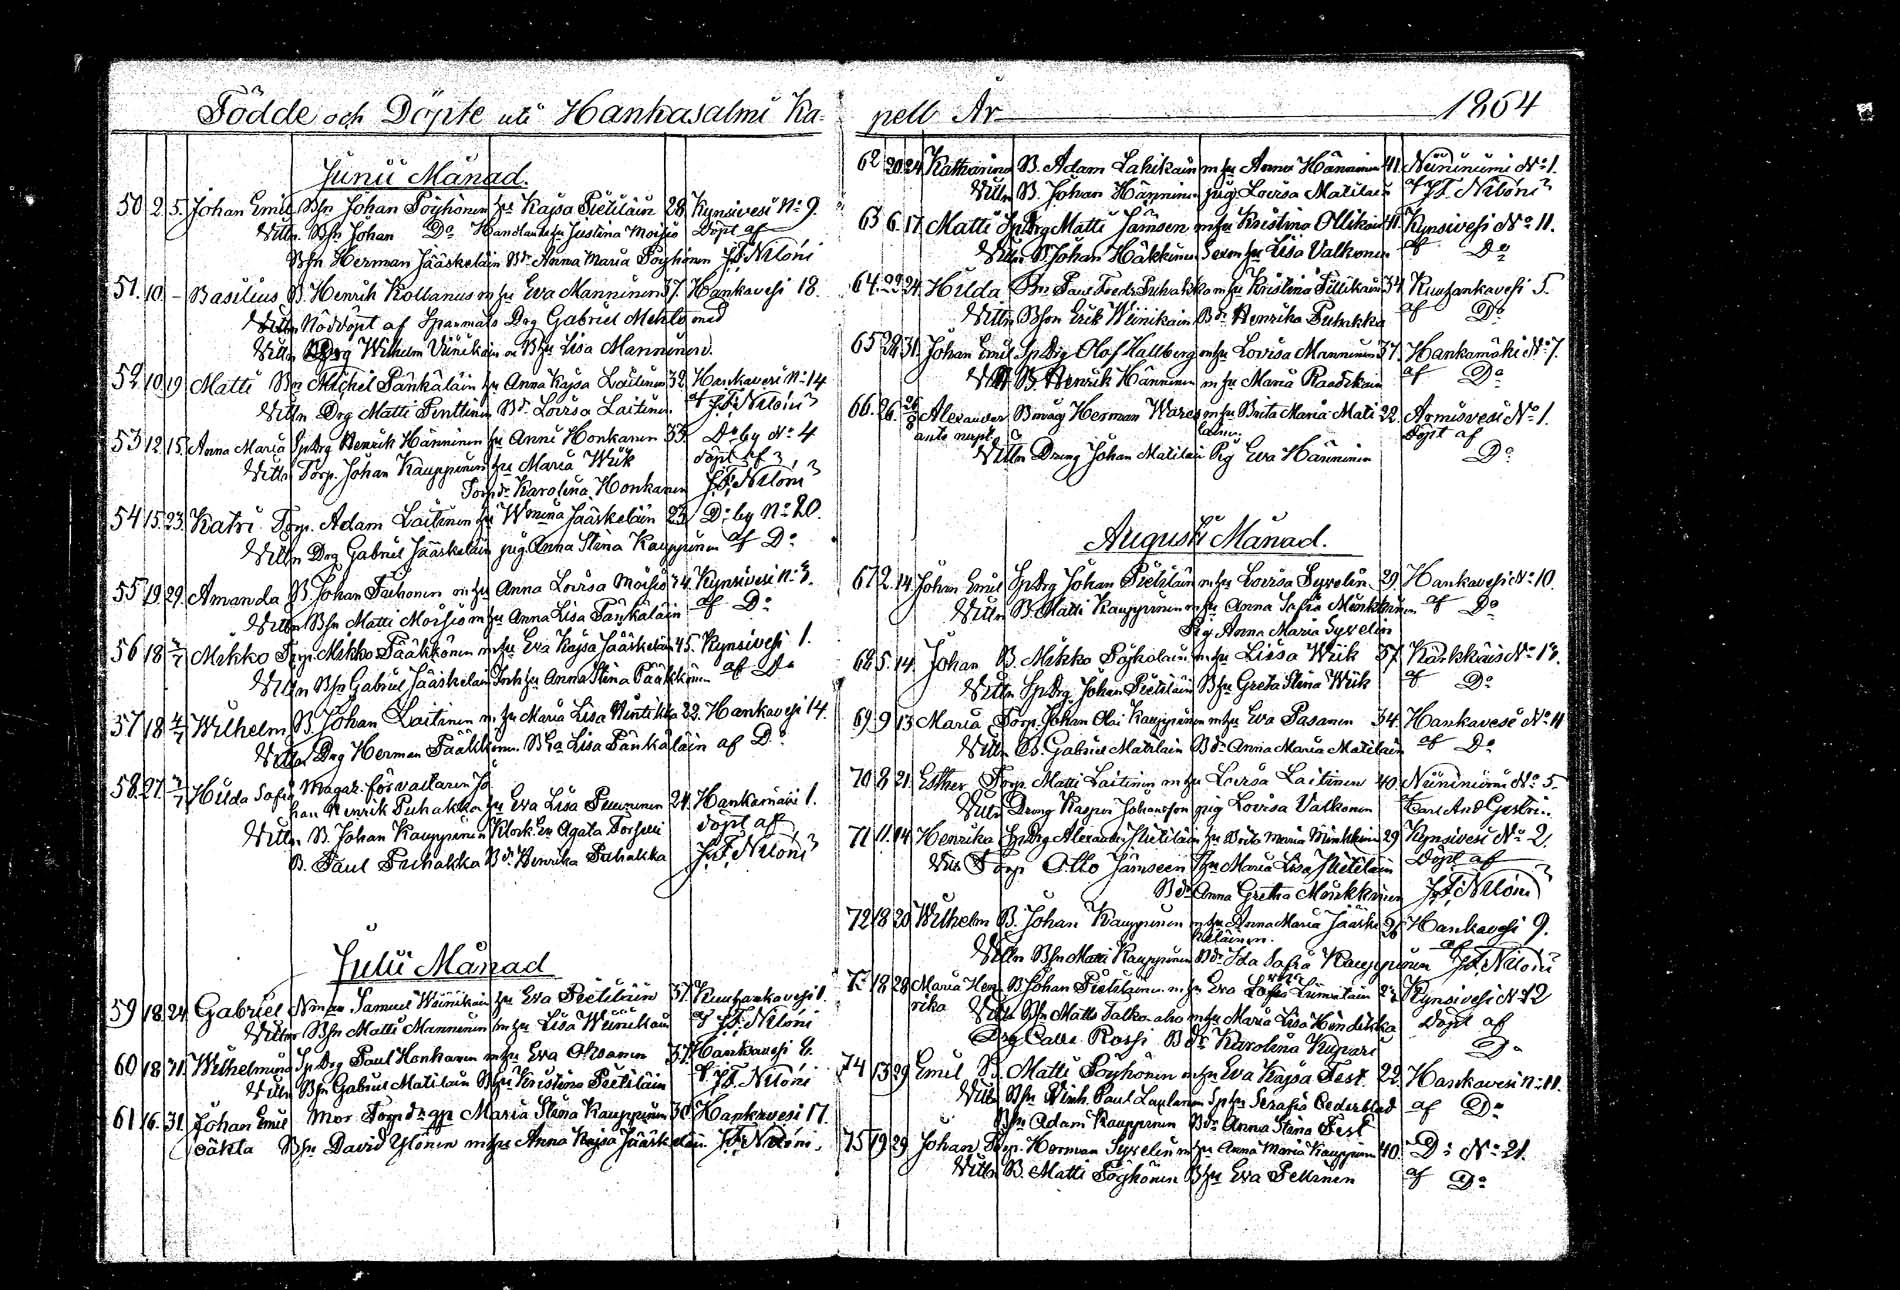 Födde och Döpte uti Hankasalmi Ka-
Junii Månad.
50 2. 5. Johan Emil Bsn Johan Pöyhönen hu Kajsa Pietiläin 28. Kynsivesi No 9.
Vittn. Bsn Johan Do Justina Moisio Döpt af
Bsn Herman Jääskeläin Bdr Anna Maria Pöyhönen J.F. Niloni
51. 10 - Basilius B. Henrik Kollanus m hu Eva Manninen 37. Hankavesi 18.
Vittn Nöddöpt af Sparmans Drg Gabriel Mehto med
Vittn Drg Wilhelm Viinikain o Bhu Lisa Manninen.
52 10 19 Matti Bn Michel Pänkäläin hu Anna Kajsa Laitinen 32. Hankavesi No 14
Vittn Drg Matti Penttinen Bdr. Lovisa Laitinen af J.F. Niloni
53 12 15. Anna Maria SpDrg Henrik Hänninen hu Anni Honkanen 33. Do by No 4
Vittn Torp. Johan Kauppinen hu Maria Wiik döpt af
Torp dr Karolina Honkanen J.F. Niloni
54 15. 23. Katri Torp. Adam Laitinen hu Jääskeläin 23. Do by No 20.
Vittn Drg Gabriel Jääskeläin pig. Anna Stina Kauppinen af Do
55 19 29. Amanda B. Johan m hu Anna Lovisa Moisio 34. Kynsivesi No 3.
Vittn Bsn Matti Moisio m hu Anna Lisa Pänkäläin af Do
56 18 2/7 Mikko Torp. Mikko Pääkkönen m hu Eva Kajsa Jääskeläin 45. Kynsivesi 1.
Vittn Bsn Gabriel Jääskeläin hu Anna Stina Pääkkönen af Do
57 18 4/7 Wilhelm B Johan Laitinen m hu Maria Lisa Hintikka 22. Hankavesi 14.
Vittn Drg Herman Pääkkönen. Lisa Pänkäläin af Do
58. 27. 3/7 Hilda Sofia Magaz. förvaltaren Jo
han Henrik Puhakka hu Eva Lisa Puuninen 24. Hankamäki 1.
Vittn B. Johan Kauppinen Klock. En Agata döpt af
B. Paul Puhakka Bdr. Henrika Puhakka J.F. Niloni
Julii Månad
59 18. 24. Gabriel Samuel Wiinikain hu Eva Pietiläin 37. Kuuhankavesi 1.
Vittn Bsn Matti Manninen m hu Lisa Wiinikain af J.F. Niloni
60 18 31. Wilhelmina Sp.Drg Paul Honkanen m hu Eva Oksanen 37. Hankavesi 6.
Vittn Bsn Gabriel Matilain Bhu Kristina Pietiläin af J.F. Niloni
61 16. 31. Johan Emil Mor Torp dr gp Maria Stina Kauppinen 30. Hankavesi 17.
oäkta Bsn David Ylönen m hu Anna Kajsa Jääskeläin. J.F. Niloni.
pell År 1854
62 20 24 Katharina B. Adam Lahikain m hu Anna Hänninen 41. Niininiemi No 1.
Vittn B. Johan Hänninen pig Lovisa Matilain af J.F. Niloni
63 6. 17. Matti Sp.Drg Matti Jämsen m hu Kristina Ollikain 41. Kynsivesi No 11.
Vittn B. Johan Häkkinen hu Lisa Valkonen af Do
64. 22 24. Hilda Bn Paul Fredr Puhakka m hu Kristina Pillikain 34. Kuuhankavesi 5.
Vittn Bson Erik Wiinikain Bdr Henrika Puhakka af Do
65 28. 31. Johan Emil Sp.Drg Olof Hallberg m hu Lovisa Manninen 37. Hankamäki No 7.
Vittn B. Henrik Hänninen m hu Maria Raatikain af Do
66. 26. 26/8 Alexander Herman Wares m hu Brita Maria Mati 22. Armisvesi No 1.
ante nupt. lainen. döpt af
Vittn Dreng Johan Matilain Pig Eva Hänninen Do
Augusti Månad.
67 2. 14. Johan Emil Sp.Drg Johan Pietiläin m hu Lovisa Syvelin 29. Hankavesi No 10.
Vittn B. Matti Kauppinen m hu Anna Sofia Minkkinen af Do
Pig Anna Maria Syvelin
68 5. 14. Johan B. Mikko Pöyhölain m hu Liisa Wiik 37. Kärkkäis No 13.
Vittn Sp.Drg Johan Pietiläin Bhu Greta Stina Wiik af Do
69 9 13 Maria Torp. Johan Olai Kauppinen m hu Eva Pasanen 34. Hankavesi No 11
Vittn B. Gabriel Matilain Bdr Anna Maria Matilain af Do
70 8 21. Esther Torp. Matti Laitinen m hu Lovisa Laitinen 40. Niininiemi No 5.
Vittn Dreng Kasper Johansson pig Lovisa Valkonen Carl And
71 11. 14. Henrika Sp.Drg Alexander Pietiläin hu Brita Maria Minkkinen 29 Kynsivesi No 2.
Vittn Torp Otto Jämseen hu Maria Lisa Pietiläin Döpt af
Bdr Anna Gretha Minkkinen J.F. Niloni
72 18 20 Wilhelm B. Johan Kauppinen m hu Anna Maria Jääske 26 Hankavesi 9.
läinen.
Vittn Bsn Matti Kauppinen Bdr Ida Sofia Kauppinen af J.F. Niloni
73 18 28 Maria Hen B Johan Pietiläinen m hu Eva Liimatain Kynsivesi No 12
rika Vittn Bsn Matts m hu Maria Lisa Hindikka Döpt af
Drg Calle Rossi Bdr Karolina Kupari Do
74 13 29 Emil B. Matti Pöyhönen m hu Eva Kajsa Fest. 22. Hankavesi No 11.
Vittn Bsn Paul Laulanen Serafia Cederblad af Do
Bsn Adam Kauppinen Bdr Anna Stina Fest
75 19 29 Johan Torp. Herman Syvelin m hu Anna Maria Kauppinen 40. Do No 21.
Vittn B. Matti Pöyhönen Bhu Eva Pellinen af Do